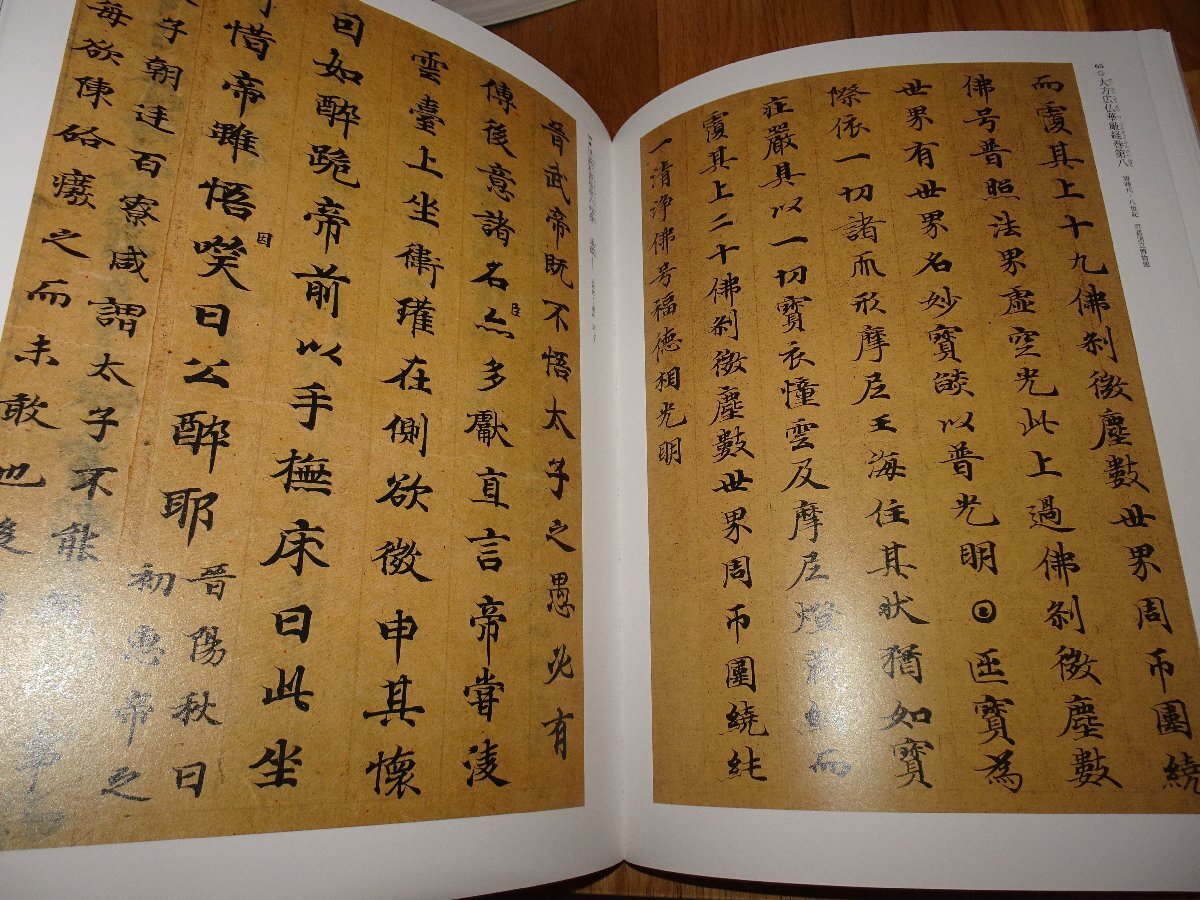 65 大方広仏華厳経巻第八 唐時代 八世紀
而覆其上十九佛剎微塵數世界周帀圍繞
佛号普照法界虛空光此上過佛剎微塵數
世界有世界名妙寶焰以普光明日匝寶為
際依一切諸而形摩尼王海住其狀猶如寶
莊嚴具以一切寶衣幢雲及摩尼燈藏網而
覆其上二十佛剎微塵數世界周帀圍繞純
一清淨佛号福德相光明
晉武帝既不悟太子之愚必有
傳後意諸名臣亦多獻直言帝嘗淩
雲臺上坐衛瓘在側欲微申其懷
因如醉跪帝前以手撫床曰此坐
可惜帝雖悟因笑曰公醉耶晉陽秋曰
初惠帝之
太子朝廷百寮咸謂太子不能
每欲陳啓廢之而未敢也後